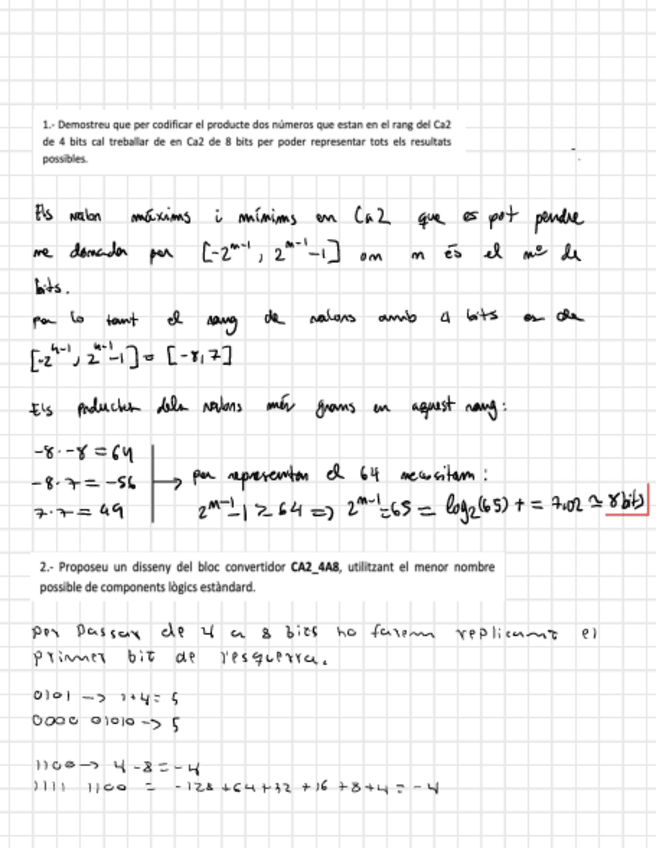 1.- Demostreu que per codificar el producte dos números que estan en el rang del Ca2
de 4 bits cal treballar de en Ca2 de 8 bits per poder representar tots els resultats
possibles.
Els valors màxims i mínims en Ca2 que es pot pendre
ve donador per [-2^{n-1}, 2^{n-1}-1] on n és el nº de
bits.
per lo tant el rang de valors amb 4 bits es de
[-2^{4-1}, 2^{4-1}-1] = [-8,7]
Els productes dels valors més grans en aquest rang:
-8·-8 = 64
-8·7 = -56 → per representar el 64 necessitam:
7·7 = 49 2^{n-1}-1 ≥ 64 => 2^{n-1} = 65 = log2(65) + = 7,02 ≃ 8 bits
2.- Proposeu un disseny del bloc convertidor CA2_4A8, utilitzant el menor nombre
possible de components lògics estàndard.
per passar de 4 a 8 bits ho farem replicant el
primer bit de l'esquerra.
0101 -> 1+4= 5
0000 01010 -> 5
1100 -> 4-8 = -4
1111 1100 = -128 +64+32 +16 +8+4 = -4